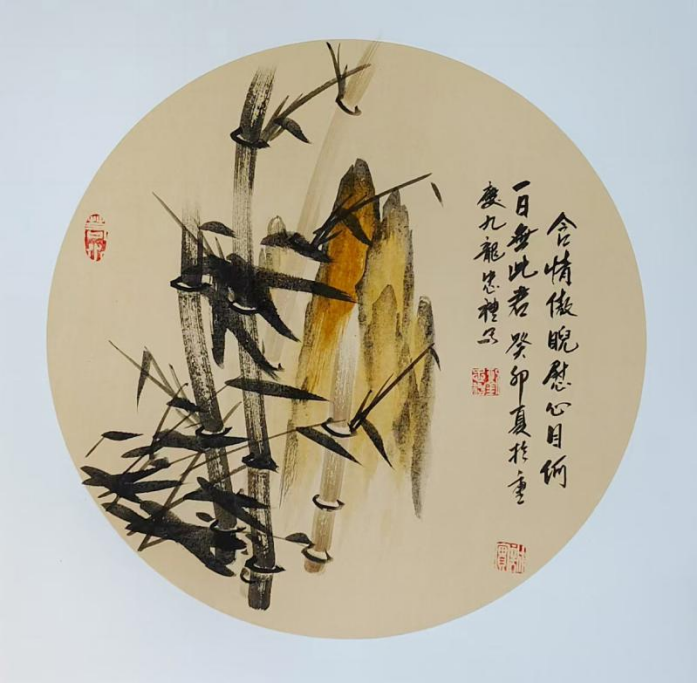 含情傲睨慰心目何
一日無此君 癸卯夏於重
慶九龍忠禮写